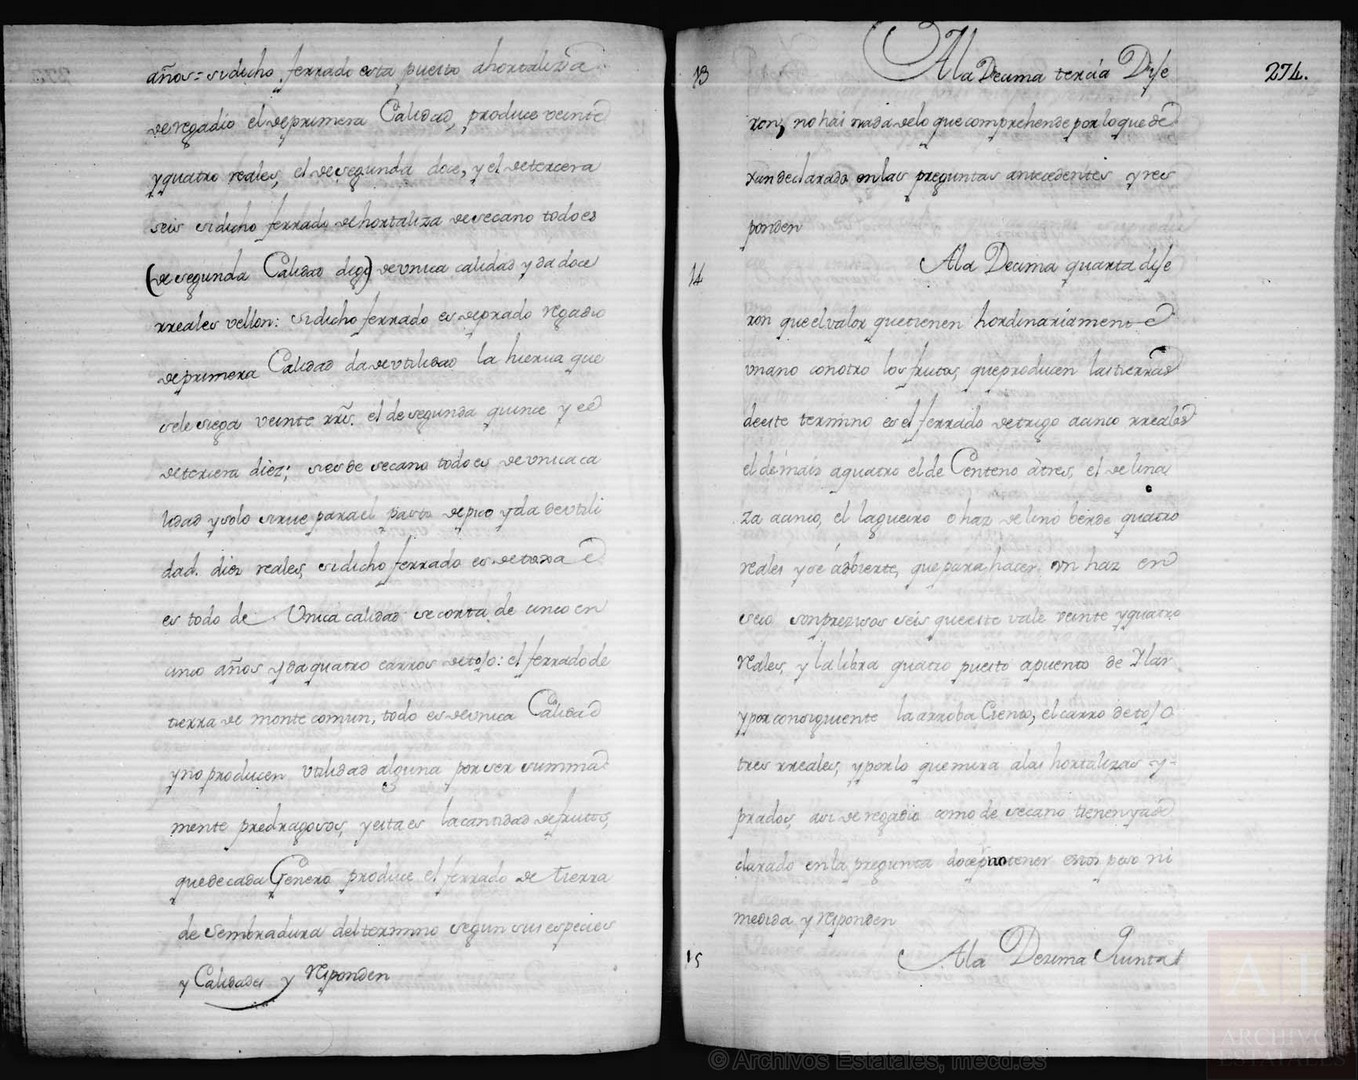 años = si dicho ferrado esta puesto ahortaliza
de regadio el de primera Calidad, produce veinte
y quatro reales, el de segunda doce, y el de tercera
seis si dicho ferrado de hortaliza de secano todo es
(de segunda Calidad digo) de unica calidad y da doce
rreales vellon: si dicho ferrado es de prado regadio
de primera Calidad da de utilidad la hierva que
se le siega veinte rrs. el de segunda quince y el
de tercera diez; si es de secano todo es de unica ca
lidad y solo sirue para el pasto de pico y da de utili
dad. diez reales, si dicho ferrado es de toxa
es todo de Unica calidad se corta de cinco en
cinco años y da quatro carros de tojo: el ferrado de
tierra de monte comun, todo es de unica Calidad
y no producen utilidad alguna por ser summa
mente predragosos, y esta es la cantidad de frutos,
que de cada Genero produce el ferrado de tierra
de sembradura del termino segun sus especies
y Calidades y responden
13 A la Decima tercia Dije 274.
ron, no hai nada de lo que comprehende por lo que de
xan declarado en las preguntas antecedentes y res
ponden
14 A la Decima quarta dije
ron que el valor que tienen hordinariamente
un ano con otro los frutos, que producen las tierras
de este termino es el ferrado de trigo a cinco rreales
el de mais a quatro el de Centeno à tres, el de lina
za a cinco, el lagueiro o haz de lino berde quatro
reales y se adbierte, que para hacer un haz en
seco son precisos seis que este vale veinte y quatro
reales, y la libra quatro puesto a punto de Ylar
y por consiguiente la arroba Ciento, el carro de tojo
tres rreales, y por lo que mira a las hortalizas y
prados, asi de regadio como de secano tienen ya de
clarado en la pregunta doce, no tener estos peso ni
medida y responden
15 A la Decima Quinta
© Archivos Estatales, mecd.es
ARCHIVOS
ESTATALES